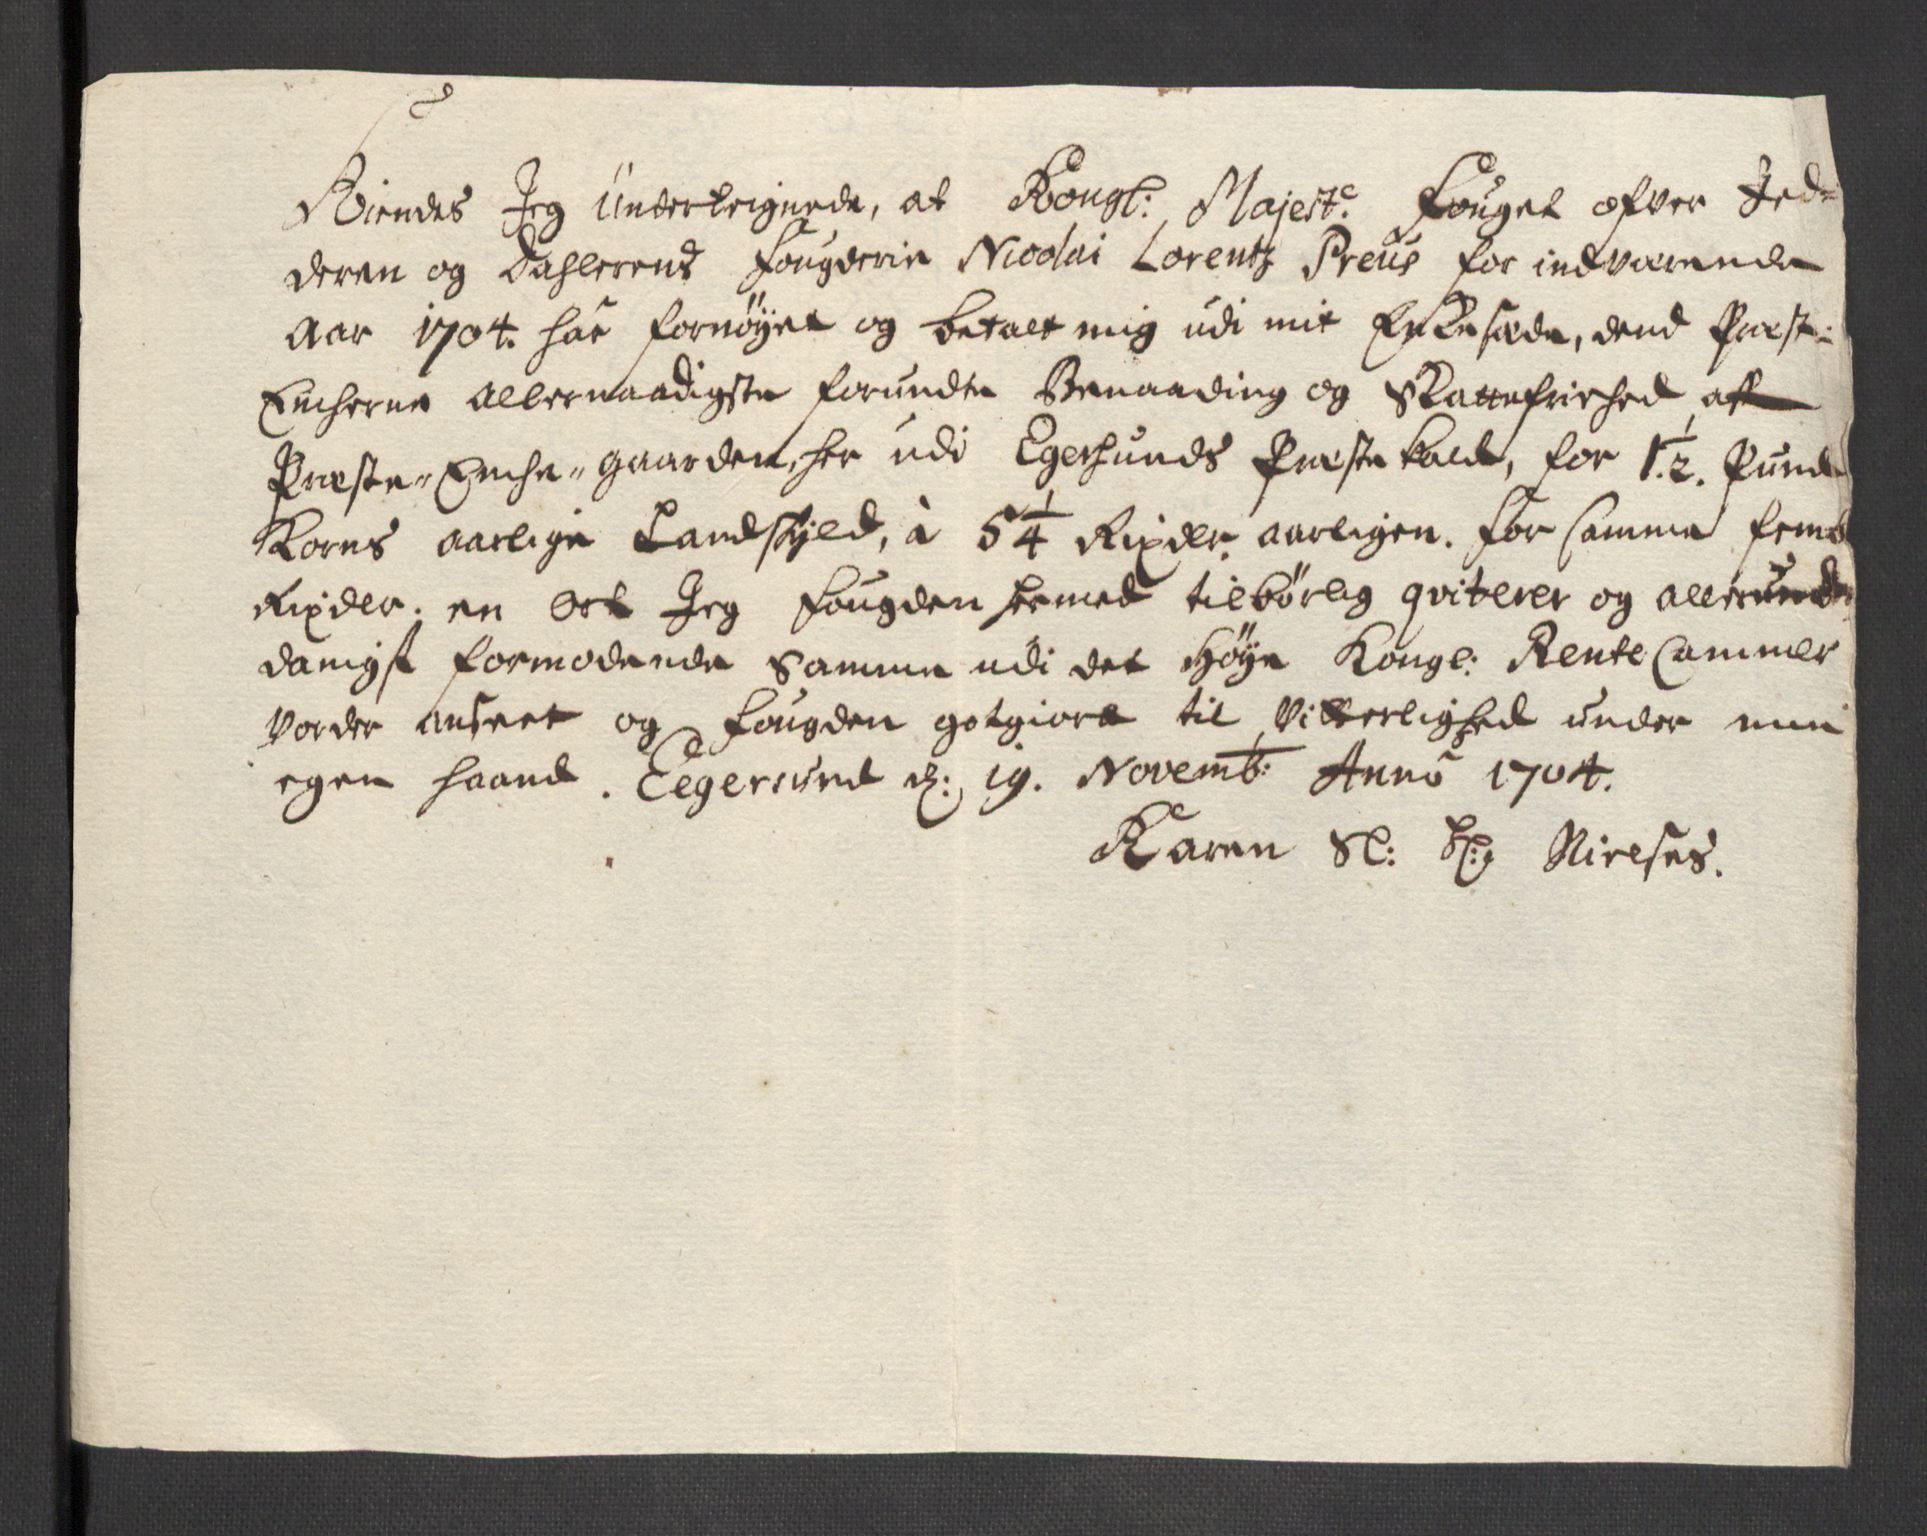 Kiendes Jeg Underteignede, at Kongl: Majestc. Fouget ofver Jed-
deren og Dahlerens Fougderie Nicolai Lorentz Preus for indværende
Aar 1704. har fornöyet og betalt mig udi mit Enkesæde, dend Præste:
Encherne allernaadigste forundte Benaading og Skattefriehed aff
Præste-Enche-gaarden, her udi Egersunds Præstekald, for 1½. Pund
Korns aarlige Landskyld, à 5¼ Rixdlr. aarligen. for samme femb
Rixdlr. en Ort Jeg Fougden hermed tilbörlig qviterer og allerunder
danigst formodende Samme udi det Höye Kongl: Rente Cammer
vorder anseet og Fougden gotgiort til Vitterlighed under min
egen haand. Eegersund d: 19. Novemb: Anno 1704.
Karen Sl: Hr: Nielses.